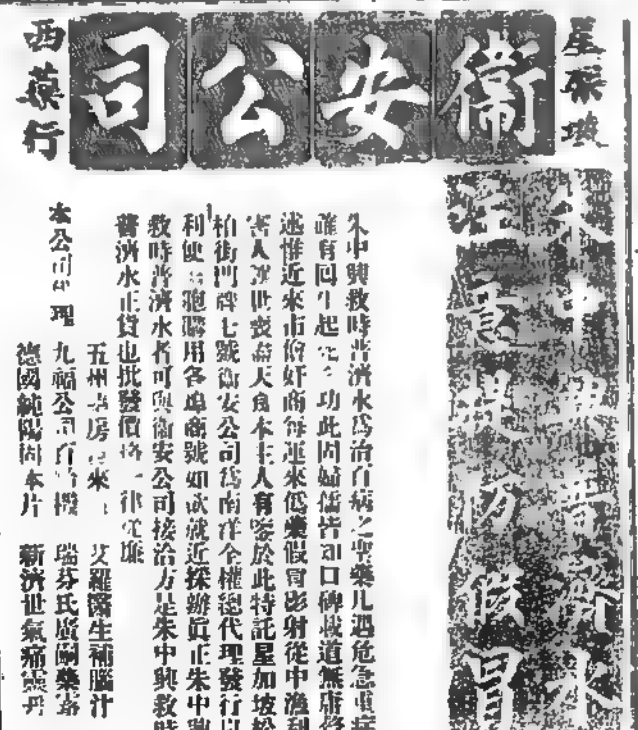 星架坡
衞安公司
西藥行
朱中興普濟水
注意提防假冒
朱中興救時普濟水為治百病之聖藥凡遇危急重症
確有回生起死之功此固婦儒皆知口碑載道無庸贅
述惟近來市儈奸商每運來低藥假冒影射從中漁利
害人喪天良本主人有鑒於此特託星加坡松
柏街門牌七號衞安公司為南洋全權總代理發行以
利便胞購用各埠商號如欲就近採辦真正朱中興
救時普濟水者可與衞安公司接洽方是朱中興救時
普濟水正貨也批發價格一律從廉
本公司代理
五州房來 艾羅醫生補腦汁
九福公司百機 瑞芬氏廣嗣藥
德國純陽固本片 新濟世氣痛靈丹